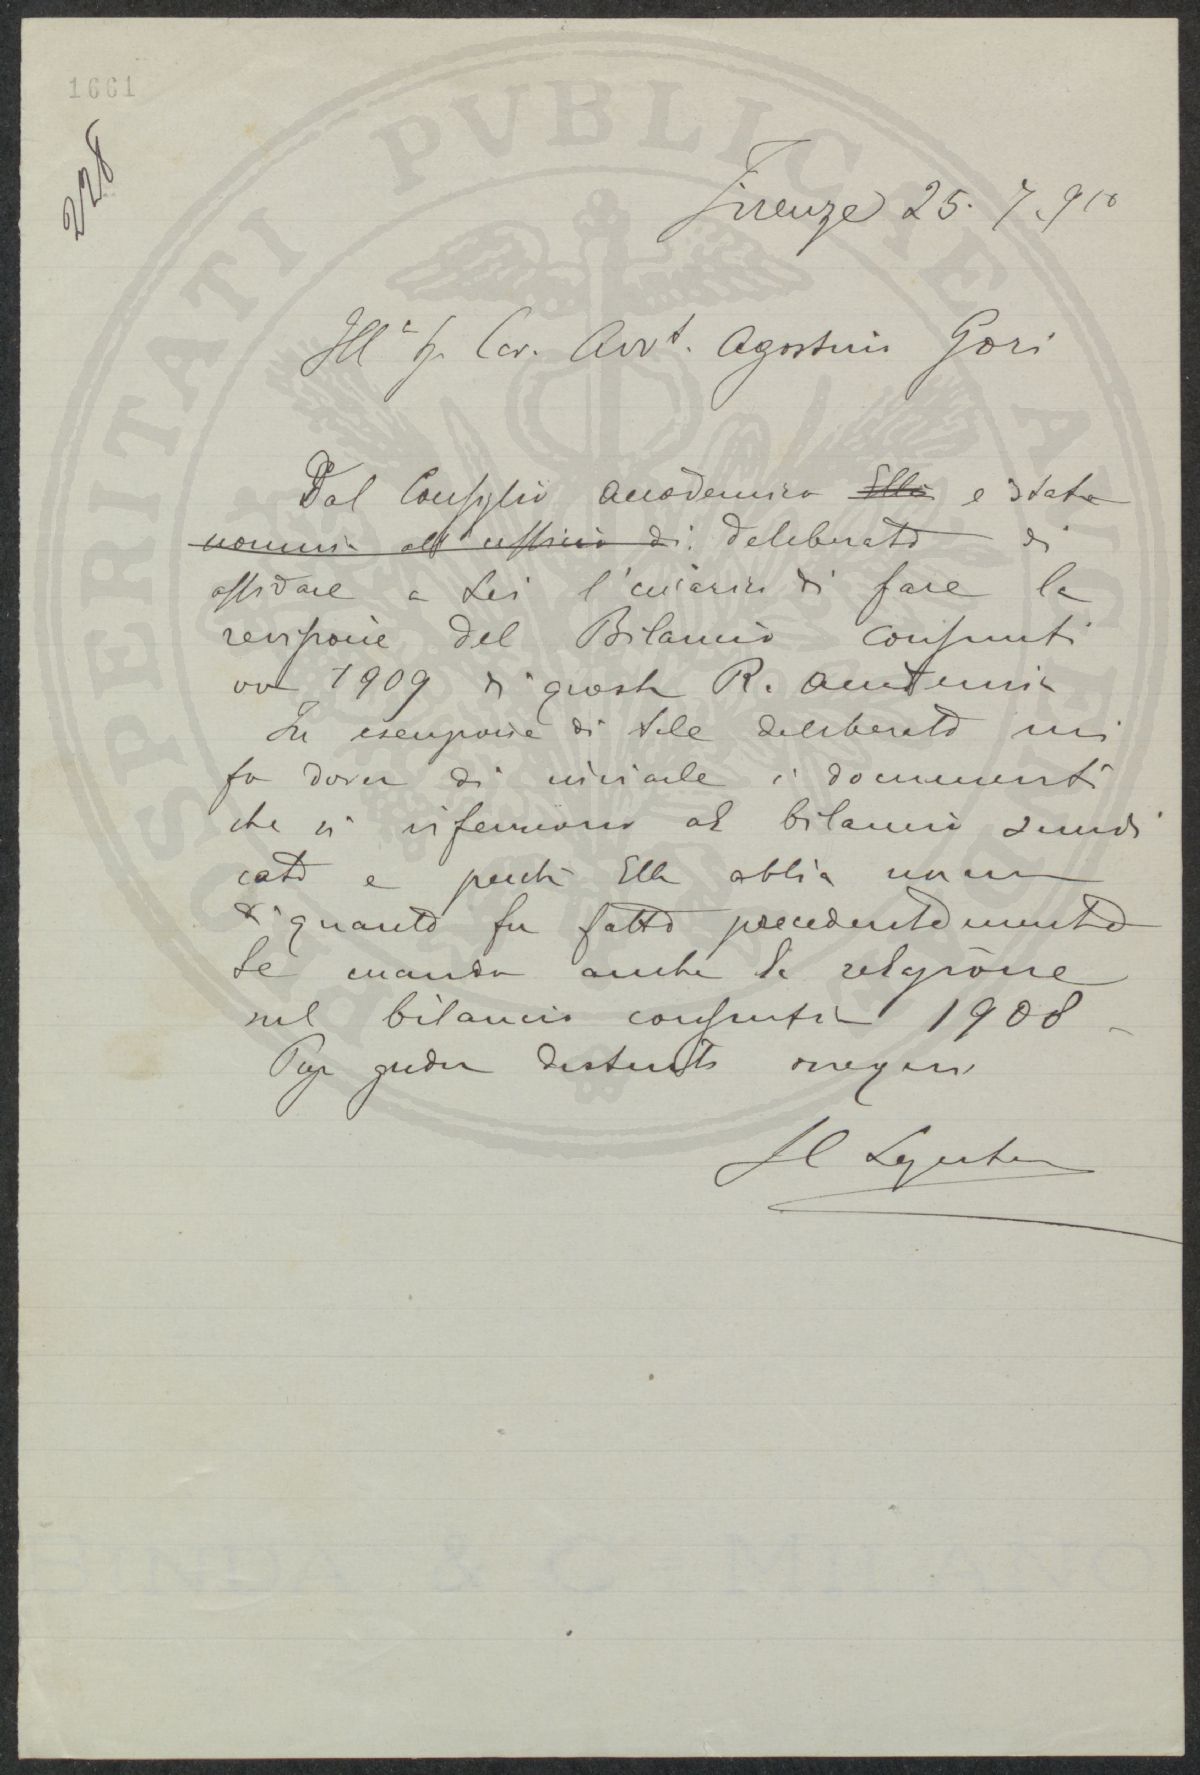 1661
228
Firenze 25. 7. 910
Ill° Sr. Cav. Avvt. Agostino Gori
Dal Consiglio Accademico Ella e stata
nomina all'ufficio di deliberato di
affidare a Lei l'incarico di fare la
revisione del Bilancio consunti
vo 1909 di questa R. Accademia
In esecuzione di tale deliberato mi
fo dover di inviarle i documenti
che si riferiscono al bilancio
cato e perchè Ella abbia
di quanto fu fatto precedentemente
Le mando anche la relazione
sul bilancio consuntivo 1908 -
Pregi gradire distinti ossequi
Il Segretario
PROSPERITATI PVBLICAE AVGENDAE